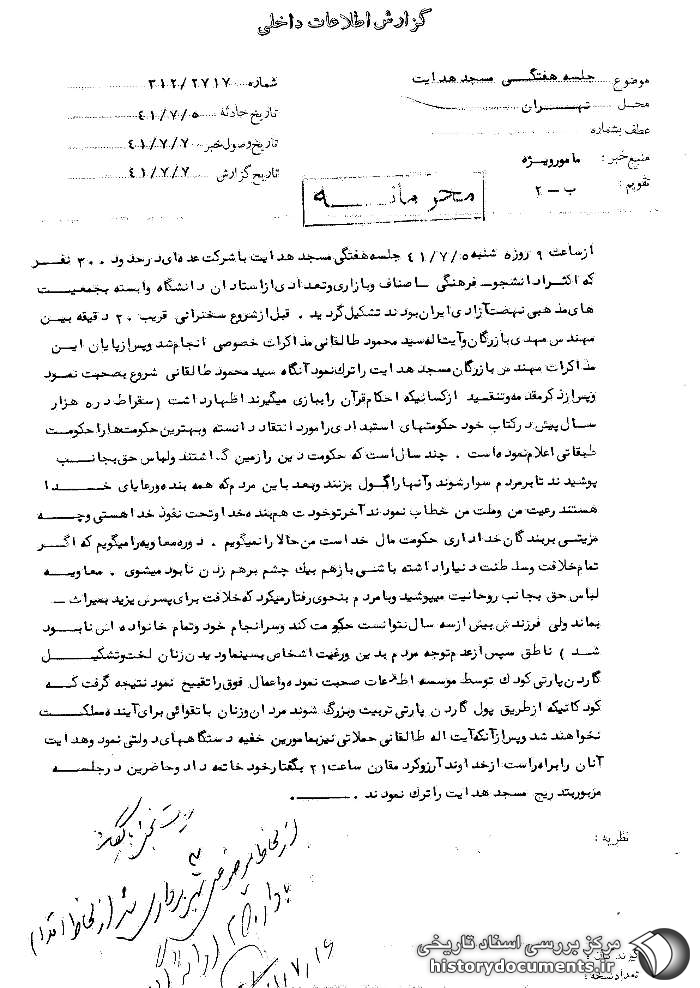 گزارش اطلاعات داخلی
موضوع جلسه هفتگی مسجد هدایت
شماره ۳۱۲/۲۷۱۷
محل تهران
تاریخ حادثه ۴۱/۷/۵
عطف بشماره
تاریخ وصول خبر ۴۱/۷/۷
منبع خبر : مامور ویژه
تاریخ گزارش ۴۱/۷/۷
تقویم : ب – ۲
محرمانه
از ساعت ۹ روزه شنبه ۴۱/۷/۵ جلسه هفتگی مسجد هدایت با شرکت عده ای در حدود ۳۰۰ نفر
که اکثرا دانشجو – فرهنگی – اصناف و بازاری و تعدادی از استادان دانشگاه وابسته بجمعیت
های مذهبی نهضت آزادی ایران بودند تشکیل گردید . قبل از شروع سخنرانی قریب ۲۰ دقیقه بین
مهندس مهدی بازرگان و آیت اله سید محمود طالقانی مذاکرات خصوصی انجام شد و پس از پایان این
مذاکرات مهندس بازرگان مسجد هدایت را ترک نمود آنگاه سید محمود طالقانی شروع بصحبت نمود
و پس از ذکر مقدمه و تنقید از کسانیکه احکام قرآن را ببازی میگیرند اظهار داشت ( سقراط در ه هزار
سال پیش در کتاب خود حکومتهای استبدادی را مورد انتقاد دانسته و بهترین حکومت ها را حکومت
طبقاتی اعلام نموده است . چند سال است که حکومت دین را زمین گذاشتند و لباس حق بجانب
پوشیدند تا بر مردم سوار شوند و آنها را گول بزنند و بعد باین مردم که همه بنده و رعایای خدا
هستند رعیت من و ملت من خطاب نمودند آخر تو خودت هم بنده خدا و تحت نفوذ خدا هستی و چه
مزیتی بر بندگان خدا داری حکومت مال خدا است من حالا را نمیگویم . دوره معاویه را میگویم که اگر
تمام خلافت و سلطنت دنیا را داشته باشی باز هم بیک چشم برهم زدن نابود میشوی . معاویه
لباس حق بجانب روحانیت میپوشید و با مردم بنحوی رفتار میکرد که خلافت برای پسرش یزید بمیراث –
بماند ولی فرزندش بیش از سه سال نتوانست حکومت کند و سرانجام خود و تمام خانواده اش نابود
شد ) ناطق سپس از عدم توجه مردم بدین و رغبت اشخاص بسینما و دیدن زنان لخت و تشکیل
گاردن پارتی کودک توسط موسسه اطلاعات صحبت نموده و اعمال فوق را تقبیح نمود نتیجه گرفت که
کودکانیکه از طریق پول گاردن پارتی تربیت و بزرگ شوند مردان و زنان با تقوائی برای آینده مملکت
نخواهند شد و پس از آنکه آیت اله طالقانی حملاتی نیز بمامورین خفیه دستگاههای دولتی نمود و هدایت
آنان را براه راست از خداوند آرزو کرد مقارن ساعت ۲۱ بگفتار خود خاتمه داد و حاضرین در جلسه
مزبور بتدریج مسجد هدایت را ترک نمودند .
نظریه :
از لحاظ
۷،۱۶
گیرندگان :
تعداد نسخه :
مرکز بررسی اسناد تاریخی
historydocuments.ir